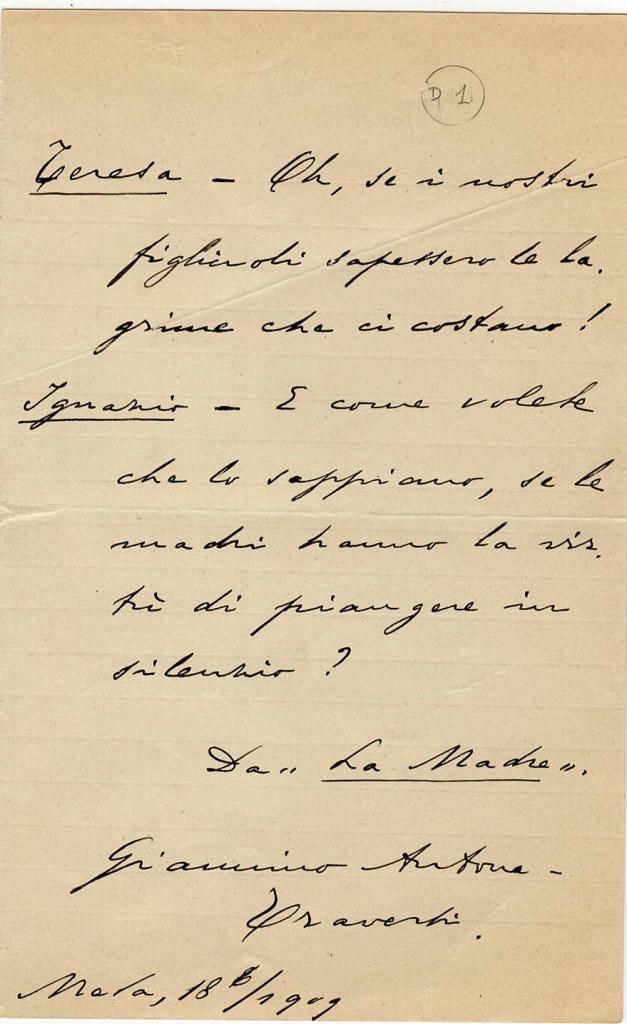 D 1
Teresa - Oh, se i nostri
figliuoli sapessero le la-
grime che ci costano!
Ignazio - E come volete
che lo sappiano, se le
madri hanno la vir-
tù di piangere in
silenzio?
Da "La Madre".
Giannino Antona-
Traversi.
Meda, 18 6/1909